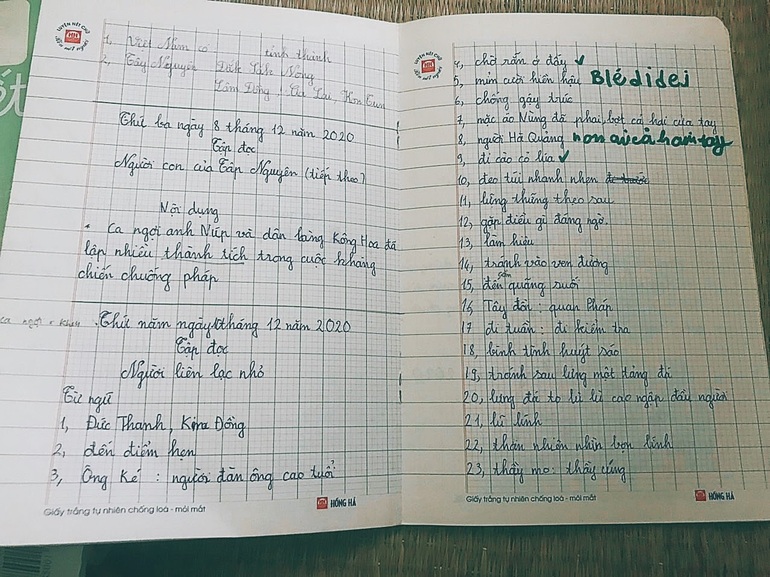 LUYỆN NÉT CHỮ
1, Việt Nam có tỉnh thành
2, Tây Nguyên Đắk Lắk Nông
Lâm Đồng Gia Lai, Kon Tum
Thứ ba ngày 8 tháng 12 năm 2020
Tập đọc
Người con của Tây Nguyên (tiếp theo)
Nội dung
Ca ngợi anh Núp và dân làng Kông Hoa đã
lập nhiều thành tích trong cuộc kháng
chiến chuống pháp
ca ngợi
Thứ năm ngày 10 tháng 12 năm 2020
Tập đọc
Người liên lạc nhỏ
Từ ngữ
1, Đức Thanh, Kim Đồng
2, đến điểm hẹn
3, Ông Ké : người đàn ông cao tuổi
Giấy trắng tự nhiên chống loá - mỏi mắt
HỒNG HÀ
LUYỆN NÉT CHỮ
4, chờ rắn ở đấy ✓
5, mỉm cười hiền hậu Blédidej
6, chống gậy trúc
7, mặc áo Nùng đã phai, bợt cả hai cửa tay
8, người Hà Quảng
9, đi cào cỏ lúa ✓
10, đeo túi nhanh nhẹn
11, lững thững theo sau
12, gặp điều gì đáng ngờ.
13, làm hiệu
14, tránh vào ven đường
15, đến gần quãng suối
16, Tây đồn : quan Pháp
17 đi tuần : đi kiểm tra
18, bình tĩnh huýt sáo
19, tránh sau lưng một tảng đá
20, lưng đá to lù lù cao ngập đầu người
21, lũ lính
22, thản nhiên nhìn bọn lính
23, thầy mo : thầy cúng
Giấy trắng tự nhiên chống loá - mỏi mắt
HỒNG HÀ